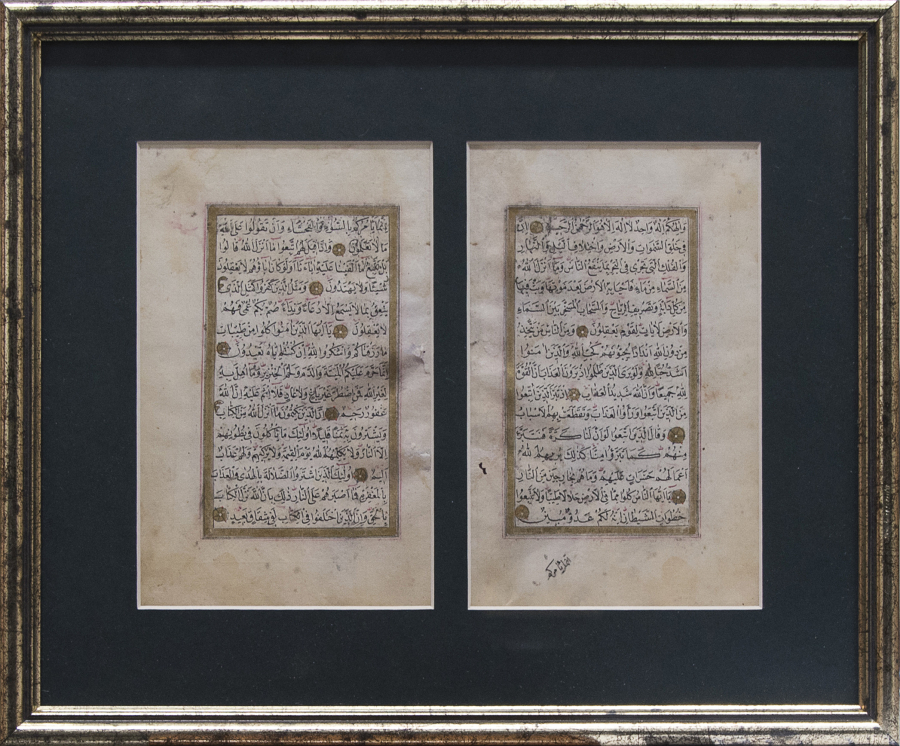 والهكم اله واحد لا اله الا هو الرحمن الرحيم ان
في خلق السموات والارض واختلاف اليل والنهار
والفلك التي تجري في البحر بما ينفع الناس وما انزل الله
من السماء من ماء فاحيا به الارض بعد موتها وبث فيها
من كل دابة وتصريف الرياح والسحاب المسخر بين السماء
والارض لايات لقوم يعقلون ومن الناس من يتخذ
من دون الله اندادا يحبونهم كحب الله والذين امنوا
اشد حبا لله ولو يرى الذين ظلموا اذ يرون العذاب ان القوة
لله جميعا وان الله شديد العذاب اذ تبرا الذين اتبعوا
من الذين اتبعوا وراوا العذاب وتقطعت بهم الاسباب
وقال الذين اتبعوا لو ان لنا كرة فنتبرا
منهم كما تبرؤا منا كذلك يريهم الله
اعمالهم حسرات عليهم وما هم بخارجين من النار
يا ايها الناس كلوا مما في الارض حلالا طيبا ولا تتبعوا
خطوات الشيطان انه لكم عدو مبين
انما يامركم
انما يامركم بالسوء والفحشاء وان تقولوا على الله
ما لا تعلمون واذا قيل لهم اتبعوا ما انزل الله قالوا
بل نتبع ما الفينا عليه اباءنا اولو كان اباؤهم لا يعقلون
شيئا ولا يهتدون ومثل الذين كفروا كمثل الذي
ينعق بما لا يسمع الا دعاء ونداء صم بكم عمي فهم
لا يعقلون يا ايها الذين امنوا كلوا من طيبات
ما رزقناكم واشكروا لله ان كنتم اياه تعبدون
انما حرم عليكم الميتة والدم ولحم الخنزير وما اهل به
لغير الله فمن اضطر غير باغ ولا عاد فلا اثم عليه ان الله
غفور رحيم ان الذين يكتمون ما انزل الله من الكتاب
ويشترون به ثمنا قليلا اولئك ما ياكلون في بطونهم
الا النار ولا يكلمهم الله يوم القيمة ولا يزكيهم ولهم عذاب
اليم اولئك الذين اشتروا الضلالة بالهدى والعذاب
بالمغفرة فما اصبرهم على النار ذلك بان الله نزل الكتاب
بالحق وان الذين اختلفوا في الكتاب لفي شقاق بعيد